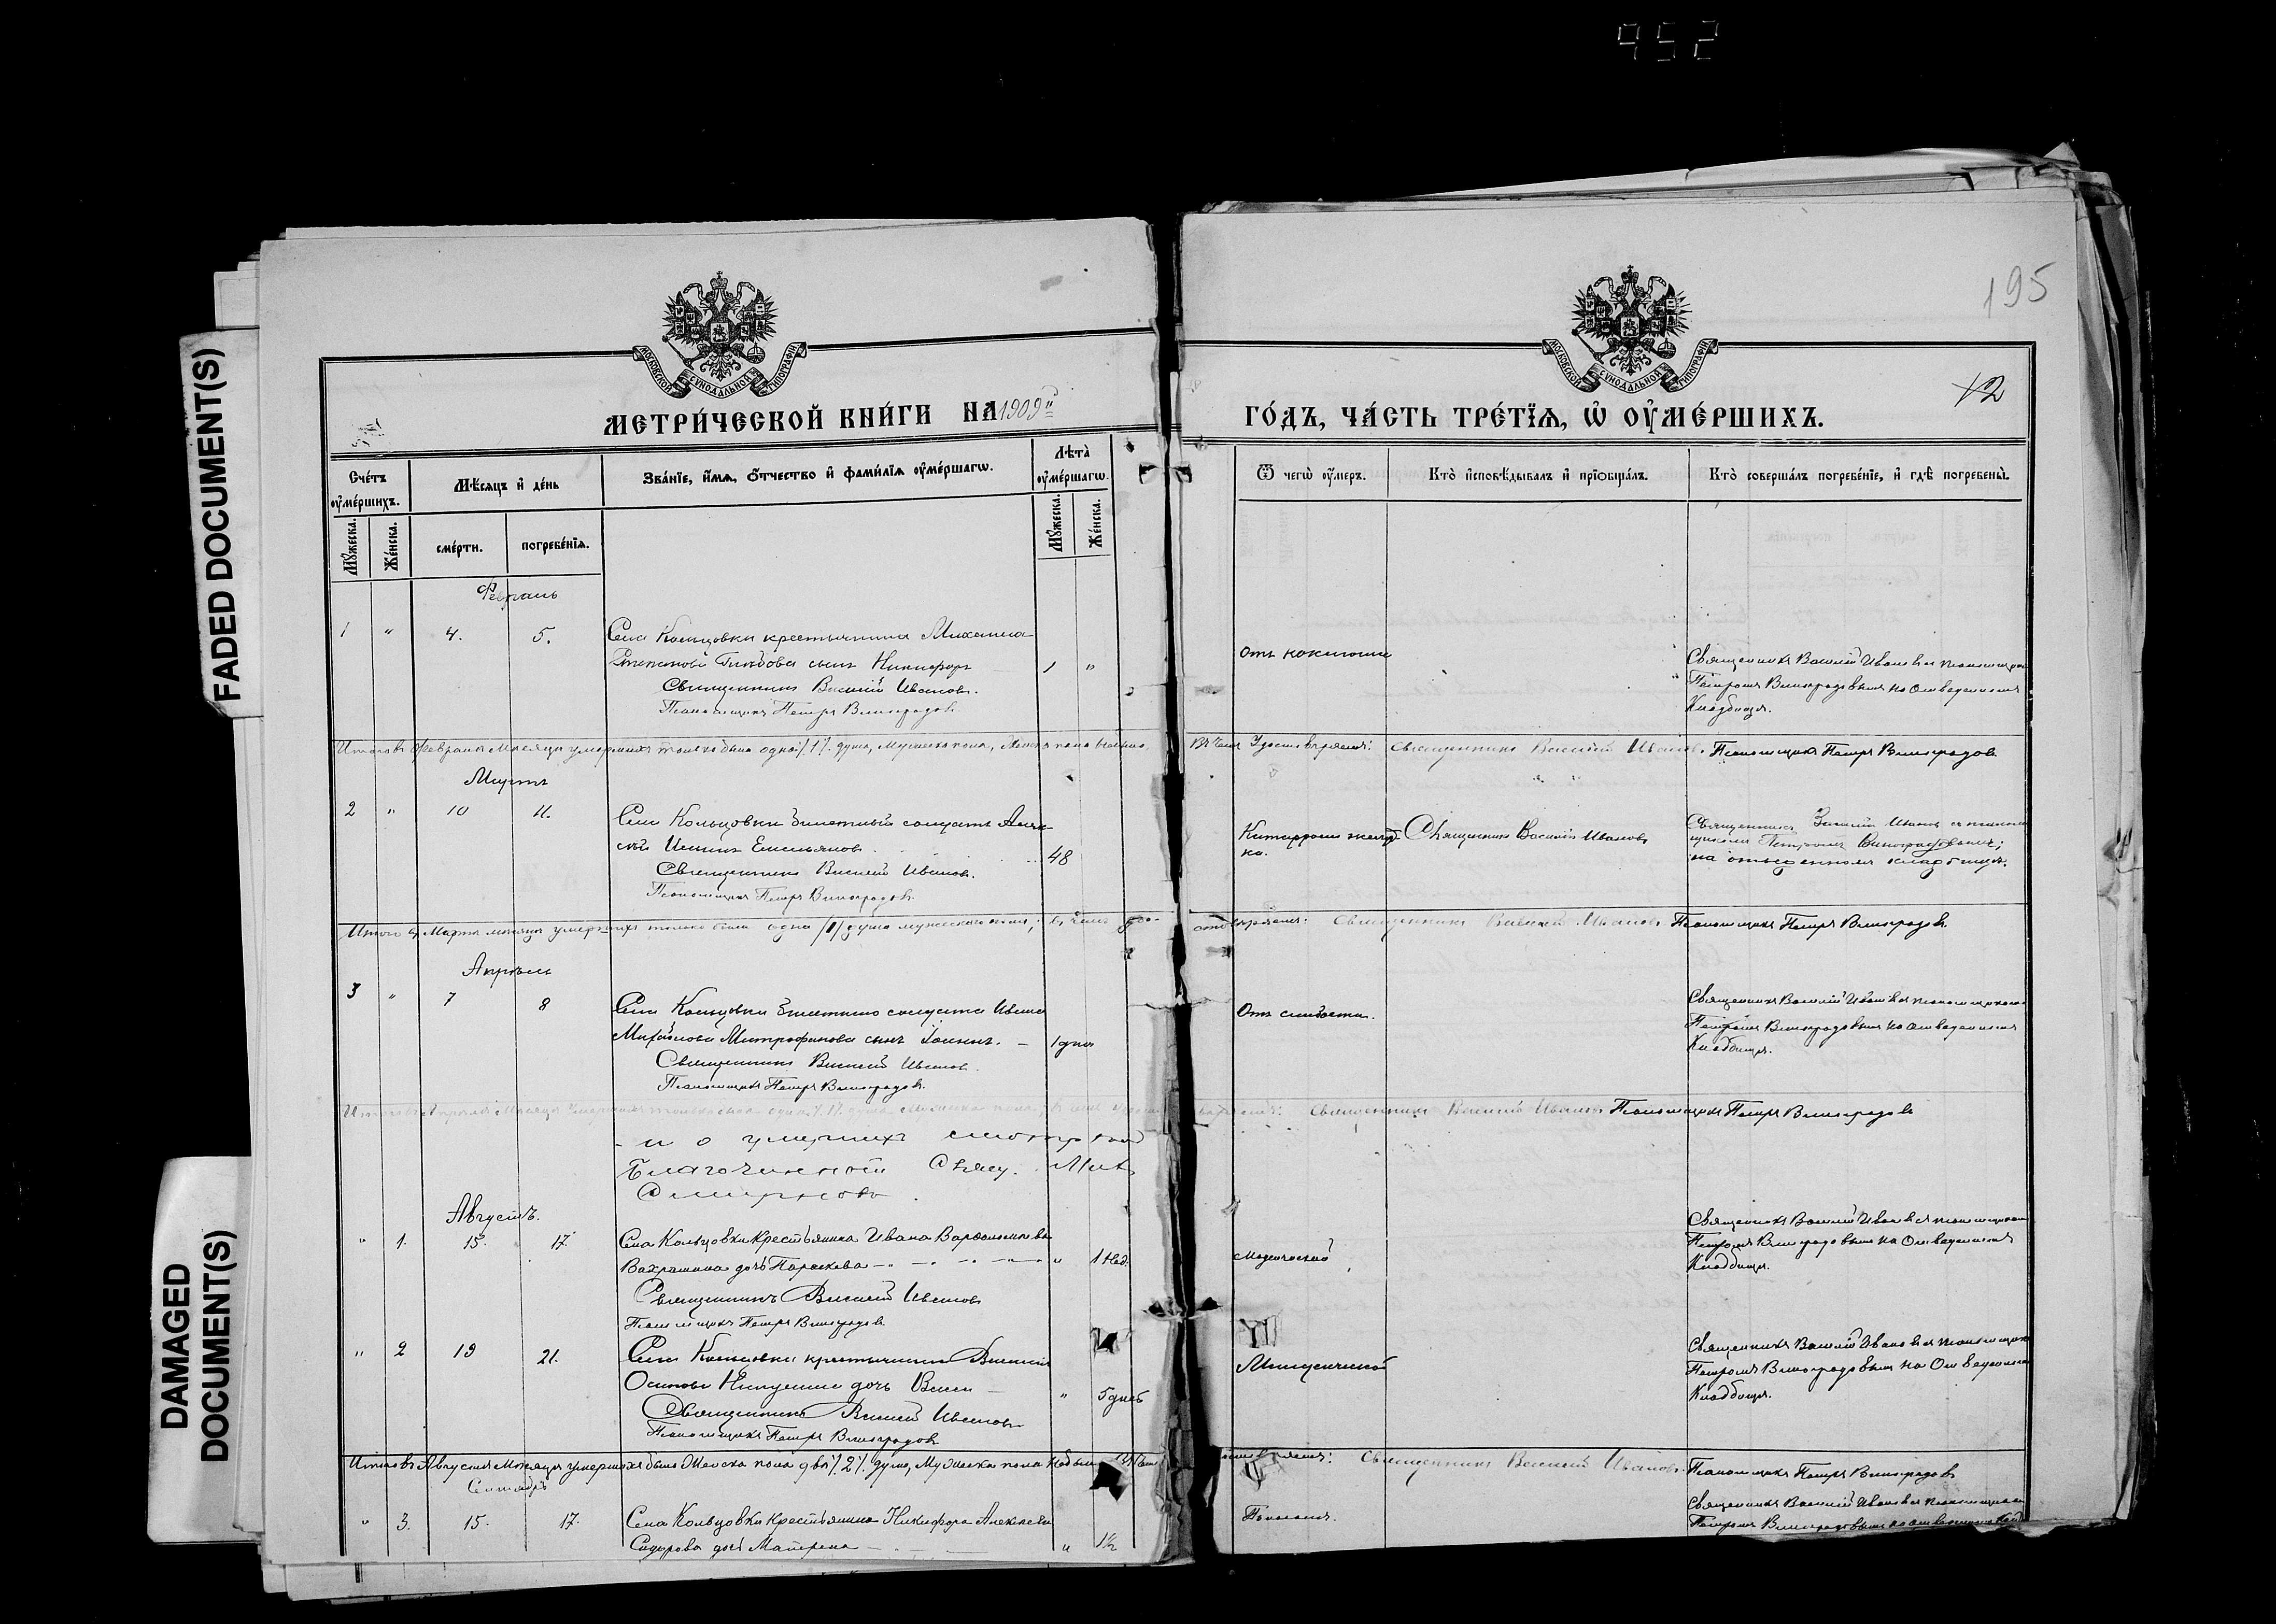 952
FADED DOCUMENT(S)
DAMAGED DOCUMENT(S)
195
МОСКОВСКОЙ СУНОДАЛЬНОЙ ТИПОГРАФІИ
МОСКОВСКОЙ СУНОДАЛЬНОЙ ТИПОГРАФІИ
12
МЕТРИ́ЧЕСКОЙ КНИ́ГИ НА 1909й
ГО́ДЪ, ЧА́СТЬ ТРЕ́ТЇѦ, Ѡ҆ ОУ҆МЕ́РШИХЪ.
Сче́тъ оу҆ме́ршихъ.
Мѣ́сяцъ и҆ де́нь
Зва́нїе, и҆́мѧ, ѻ҆́тчество и҆ фами́лїѧ оу҆ме́ршагѡ.
Лѣ́та оу҆ме́ршагѡ.
Ѿ чегѡ̀ оу҆́меръ.
Кто̀ и҆сповѣ́дывалъ и҆ прїѻбща́лъ.
Кто̀ соверша́лъ погребе́нїе, и҆ гдѣ̀ погребены̀.
Мꙋ́жеска.
Же́нска.
сме́рти.
погребе́нїѧ.
Мꙋ́жеска.
Же́нска.
Февраль
1 " 4. 5. Села Кольцовки крестьянина Михаила
Степанова сынъ Никифоръ 1 "
Священникъ Василій Ивановъ.
Псаломщикъ Петръ Виноградовъ.
Отъ коклюша
Священникъ Василій Ивановъ съ псаломщикомъ
Петромъ Виноградовымъ на отведенномъ
Кладбищѣ.
Итого въ Февралѣ мѣсяцѣ умершихъ только была одна /1/ душа, Мужеска пола, Женска пола небыло, въ чемъ Удостовѣряемъ: Священникъ Василій Ивановъ. Псаломщикъ Петръ Виноградовъ.
Мартъ
2 " 10 11. Села Кольцовки билетный солдатъ Алек-
сѣй Емельяновъ 48
Священникъ Василій Ивановъ.
Псаломщикъ Петръ Виноградовъ.
Катарромъ желуд-
ка.
Священникъ Василій Ивановъ
Священникъ Василій Ивановъ съ псалом-
щикомъ Петромъ Виноградовымъ;
на отведенномъ кладбищѣ.
Итого въ Мартѣ мѣсяцѣ умершихъ только была одна /1/ душа мужескаго пола, въ чемъ удо-
стовѣряемъ: Священникъ Василій Ивановъ Псаломщикъ Петръ Виноградовъ.
Апрѣль
3 " 7 8 Села Кольцовки билетнаго солдата Ивана
Михайлова Митрофанова сынъ Іоаннъ. — 1 дня
Священникъ Василій Ивановъ.
Псаломщикъ Петръ Виноградовъ.
Отъ слабости.
Священникъ Василій Ивановъ съ псаломщикомъ
Петромъ Виноградовымъ на отведенномъ
Кладбищѣ.
Итого въ Апрѣлѣ мѣсяцѣ умершихъ только была одна /1/ душа Мужеска пола, Священникъ Василій Ивановъ Псаломщикъ Петръ Виноградовъ
о умершихъ
Благочинный Свящ.
Смирновъ
Августъ.
" 1. 15. 17. Села Кольцовки крестьянина Ивана Варѳоломеева
Вахрамѣева дочь Параскева " 1 нед.
Священникъ Василій Ивановъ
Псаломщикъ Петръ Виноградовъ
Младенческой
Священникъ Василій Ивановъ съ псаломщикомъ
Петромъ Виноградовымъ на Отведенномъ
Кладбищѣ.
" 2 19 21. Села Кольцовки крестьянина Василія
Осипова дочь " 5 дней
Священникъ Василій Ивановъ
Псаломщикъ Петръ Виноградовъ
Младенческой
Священникъ Василій Ивановъ съ псаломщикомъ
Петромъ Виноградовымъ на Отведенномъ
Кладбищѣ.
Итого въ Августѣ Мѣсяцѣ умершихъ было Женска пола двѣ /2/ души, Мужеска пола небыло Священникъ Василій Ивановъ. Псаломщикъ Петръ Виноградовъ
Сентябрь
" 3. 15. 17. Села Кольцовки Крестьянина Никифора Алексѣева
Сидорова дочь Матрена " 1½
Поносомъ.
Священникъ Василій Ивановъ съ псаломщикомъ
Петромъ Виноградовымъ на отведенномъ